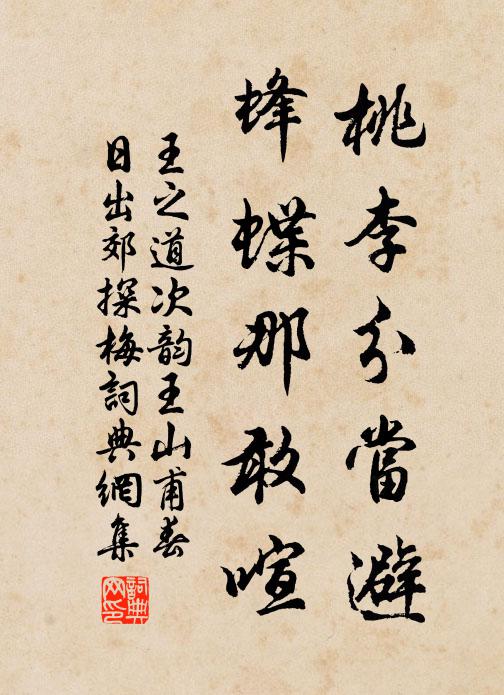 桃李分當避
蜂蝶那敢喧
王之道次韵王山甫春
日出郊探梅詞典網集
詞典
网印